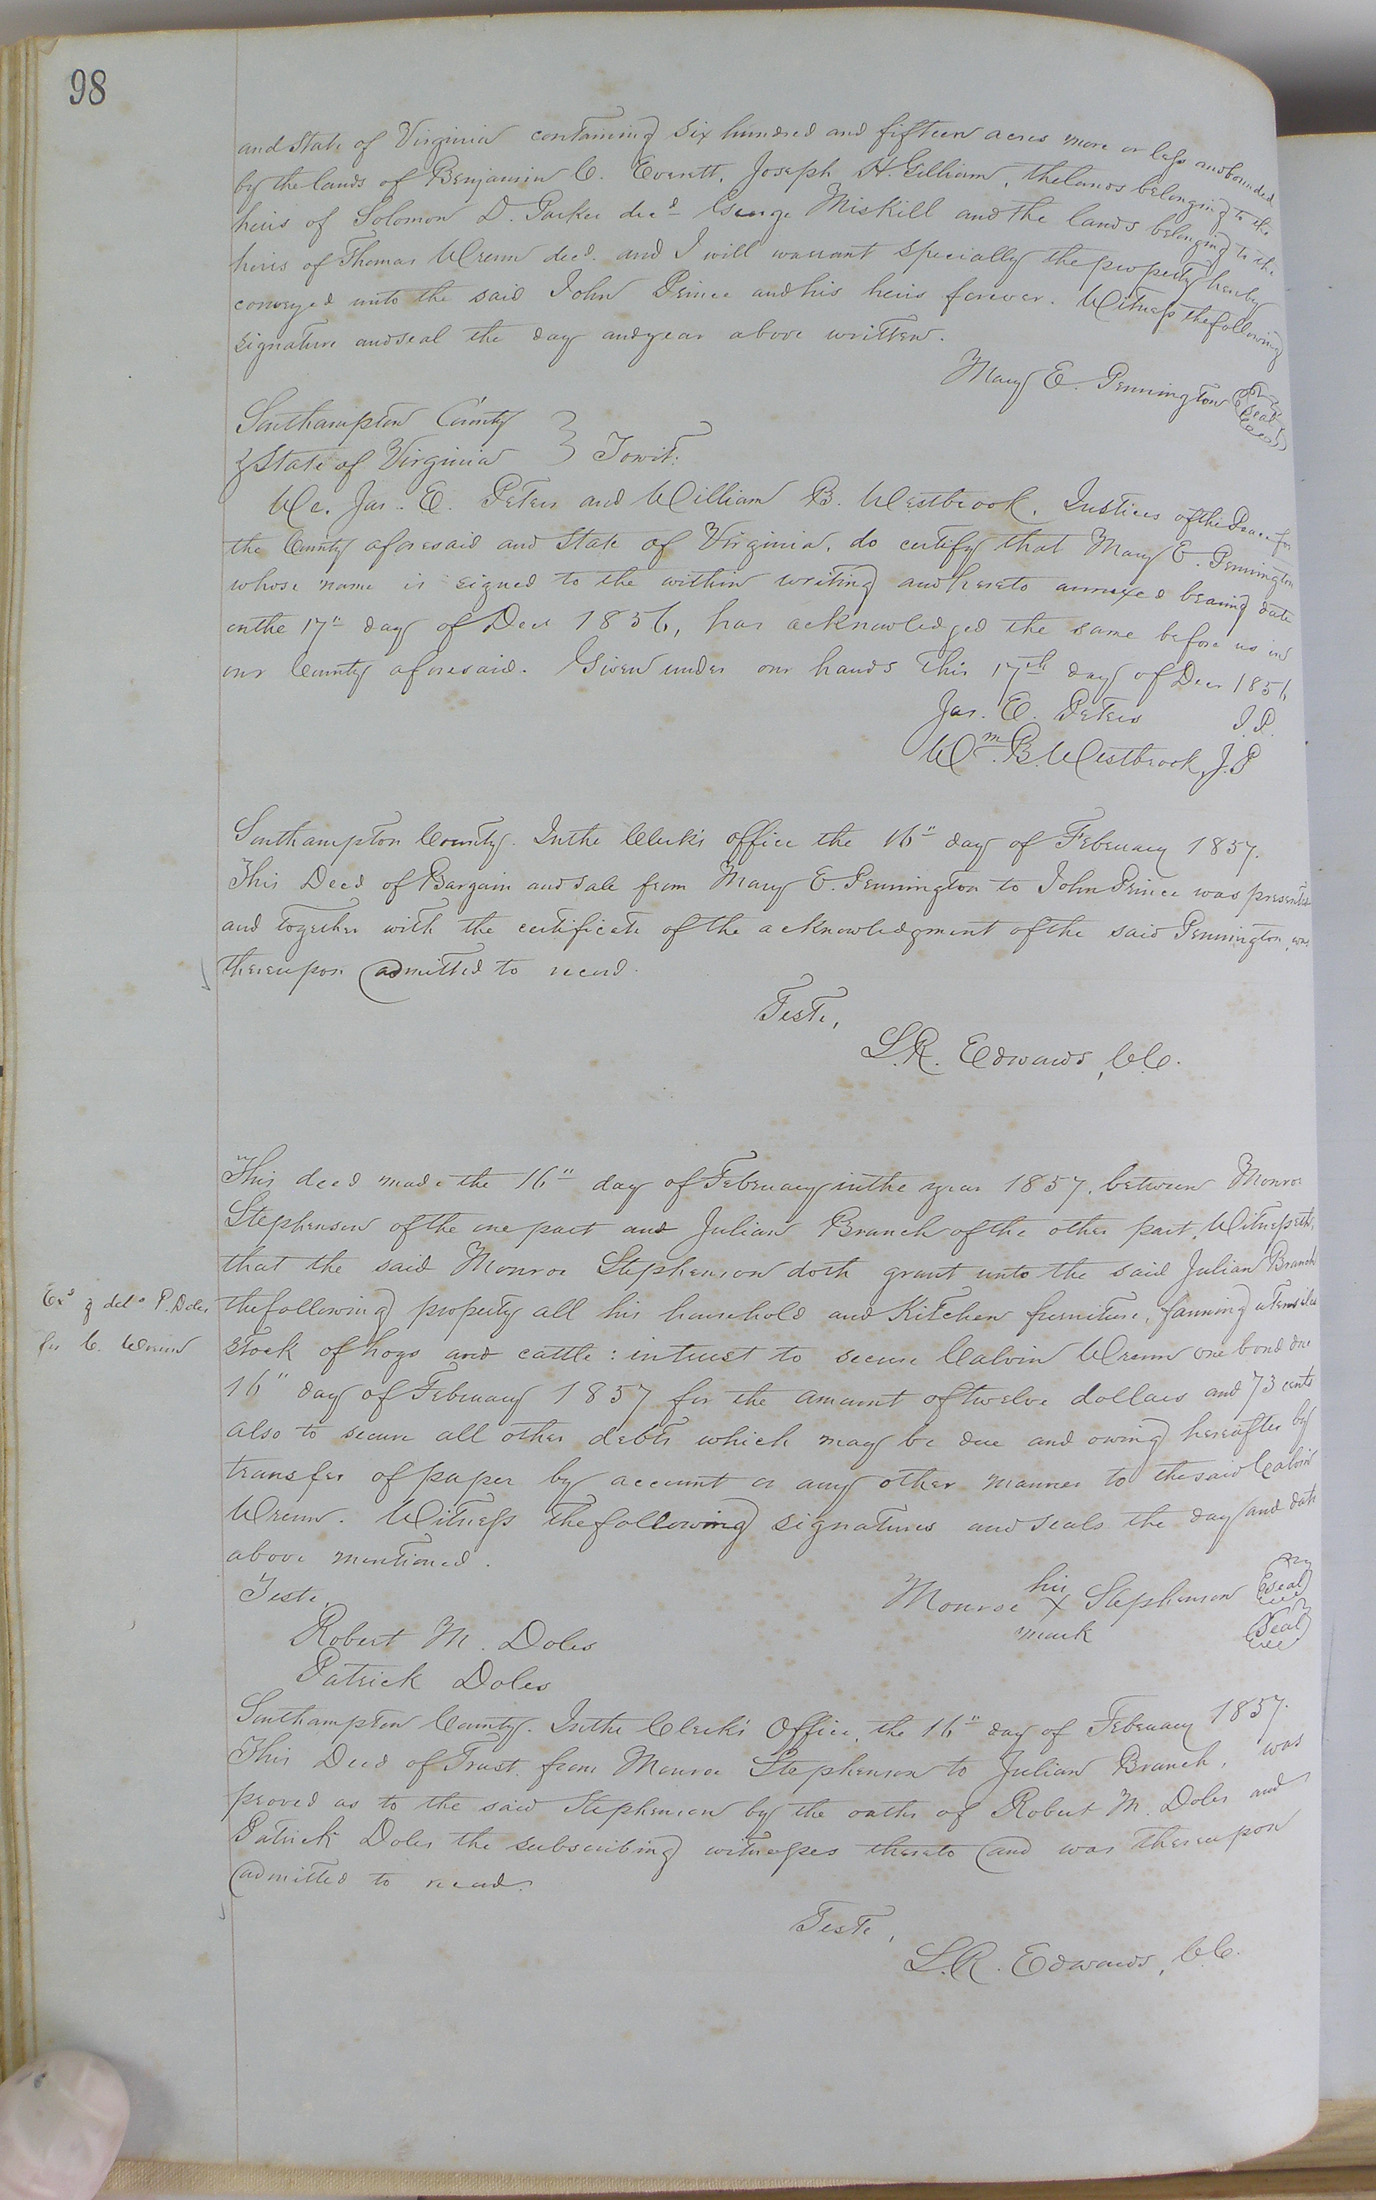 98
and State of Virginia containing six hundred and fifteen acres more or less and bounded
by the lands of Benjamin C. Everett, Joseph H. Gilliam, the lands belonging to the
heirs of Solomon D. Parker decd George Miskill and the lands belonging to the
heirs of Thomas Wrenn decd. and I will warrant specially the property hereby
conveyed unto the said John Prince and his heirs forever. Witness the following
signature and seal the day and year above written.
Mary E. Pennington Seal
Southampton County
& State of Virginia } Towit:
We, Jas. E. Peters and William B. Westbrook, Justices of the Peace for
the County aforesaid and State of Virginia, do certify that Mary E. Pennington
whose name is signed to the within writing and hereto annexed bearing date
on the 17" day of Decr 1856, has acknowledged the same before us in
our County aforesaid. Given under our hands this 17th day of Decr 1856
Jas. E. Peters J.P.
Wm. B. Westbrook, J.P
Southampton County. In the Clerk's office the 16" day of February 1857.
This Deed of Bargain and sale from Mary E. Pennington to John Prince was presented
and together with the certificate of the acknowledgment of the said Pennington, was
thereupon admitted to record.
Teste,
L.R. Edwards, C.C.
This deed made the 16" day of February in the year 1857, between Monroe
Stephenson of the one part and Julian Branch of the other part, Witnesseth,
that the said Monroe Stephenson doth grant unto the said Julian Branch
Exd & deld P. Doles
for C. Wrenn
the following property all his household and Kitchen furniture, farming utensiles
stock of hogs and cattle: intrust to secure Calvin Wrenn one bond due
16" day of February 1857 for the amount of twelve dollars and 73 cents
also to secure all other debts which may be due and owing hereafter by
transfer of paper by account or any other manner to the said Calvin
Wrenn. Witness the following signatures and seals the day and date
above mentioned.
Teste,
Monroe his X mark Stephenson Seal
Seal
Robert M. Doles
Patrick Doles
Southampton County. In the Clerk's Office, the 16" day of February 1857.
This Deed of Trust from Monroe Stephenson to Julian Branch, was
proved as to the said Stephenson by the oaths of Robert M. Doles and
Patrick Doles the subscribing witnesses thereto and was thereupon
admitted to record.
Teste,
L.R. Edwards, C.C.